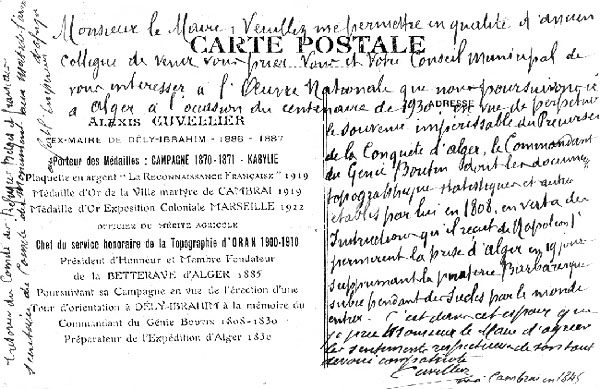 Monsieur le Maire, Veuillez me permettre en qualité d'ancien
collègue de venir vous prier Vous et votre Conseil Municipal de
vous interesser à l'Œuvre Nationale que nous poursuivons ici
à Alger à l'occasion du centenaire de 1930, en vue de perpétuer
le souvenir impérissable du Précurseur
de la Conquête d'Alger, le Commandant
du Génie Boutin dont les documents
topographiques statistiques et autres
établis par lui en 1808, en vertu des
Instructions qu'il reçut de Napoléon 1er
permirent la prise d'Alger en 19 jours
supprimant la piraterie Barbaresque
subie pendant des siècles par le monde
entier. C'est dans cet espoir que
je prie Monsieur le Maire d'agréer
les sentiments respectueux de son tout
dévoué compatriote
Cuvellier
né à Cambrai en 1845
CARTE POSTALE
ADRESSE
ALEXIS CUVELLIER
EX-MAIRE DE DÉLY-IBRAHIM - 1886 - 1887
Porteur des Médailles : CAMPAGNE 1870-1871 - KABYLIE
Plaquette en argent "LA RECONNAISSANCE FRANÇAISE" 1919
Médaille d'Or de la Ville martyre de CAMBRAI 1919
Médaille d'Or Exposition Coloniale MARSEILLE 1922
OFFICIER DU MÉRITE AGRICOLE
Chef du service honoraire de la Topographie d'ORAN 1900-1910
Président d'Honneur et Membre Fondateur
de la BETTERAVE d'ALGER 1885
Poursuivant sa Campagne en vue de l'érection d'une
Tour d'orientation à DÉLY-IBRAHIM à la mémoire du
Commandant du Génie BOUTIN 1808-1830
Préparateur de l'Expédition d'Alger 1830
Trésorier du Comité des Réfugiés Belges et français
secrétaire du Comité du Monument aux